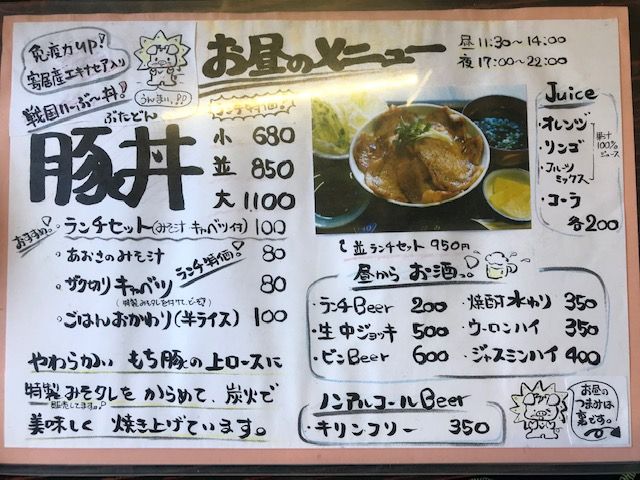 免疫力up!
寄居産エキナセア入り
戦国いーぶ〜丼!
うんまい、
お昼のメニュー
昼 11:30〜14:00
夜 17:00〜22:00
ランチ特価!
ぶたどん
豚丼
小 680
並 850
大 1100
おすすめ。
ランチセット(みそ汁 キャベツ付) 100
あおさのみそ汁 80
ランチ特価!
ザク切りキャベツ 80
(特製みそタレを付けて、どーぞ)
ごはんおかわり(半ライス) 100
やわらかい もち豚の上ロースに
特製みそタレをからめて、炭火で
販売してます。
美味しく 焼き上げています。
Juice
・オレンジ
・リンゴ
・フルーツミックス
果汁100%ジュース
・コーラ
各200
並ランチセット 950円
昼から お酒っ
・ランチBeer 200
・生中ジョッキ 500
・ビンBeer 600
・焼酎水わり 350
・ウーロンハイ 350
・ジャスミンハイ 400
ノンアルコールBeer
・キリンフリー 350
お昼の
つまみは
裏です。